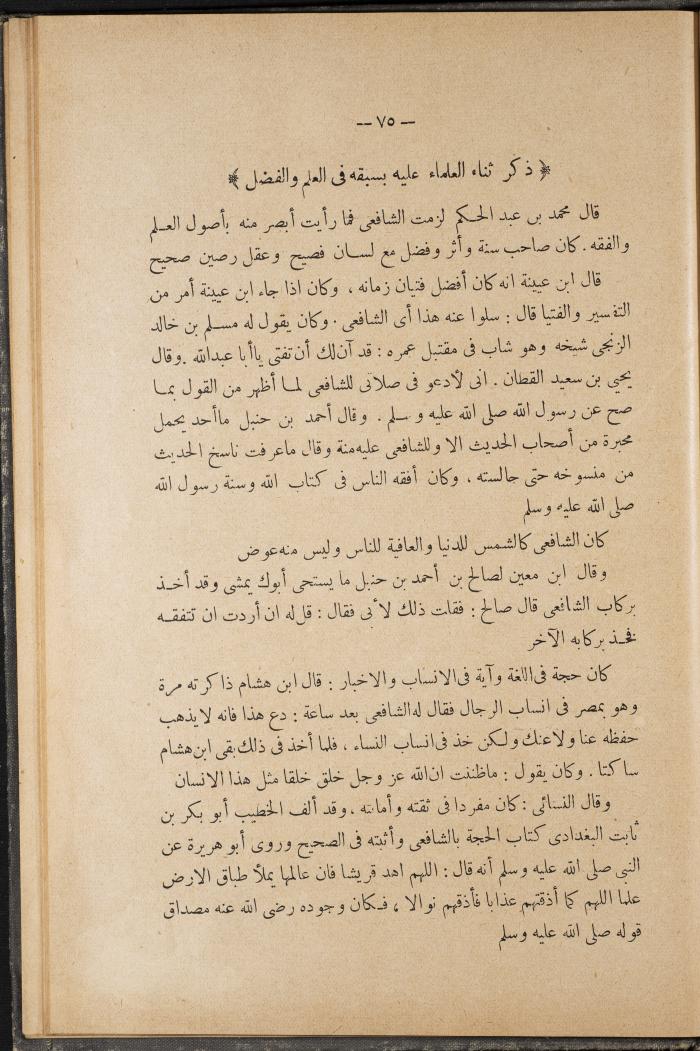 — ٧٥ —
﴿ ذكر ثناء العلماء عليه بسبقه فى العلم والفضل ﴾
قال محمد بن عبد الحكم لزمت الشافعى فما رأيت أبصر منه بأصول العلم
والفقه . كان صاحب سنة وأثر وفضل مع لسان فصيح وعقل رصين صحيح
قال ابن عيينة انه كان أفضل فتيان زمانه ، وكان اذا جاء ابن عيينة أمر من
التفسير والفتيا قال : سلوا عنه هذا أى الشافعى . وكان يقول له مسلم بن خالد
الزنجى شيخه وهو شاب فى مقتبل عمره : قد آن لك أن تفتى ياأبا عبدالله . وقال
يحيى بن سعيد القطان . انى لأدعو فى صلاتى للشافعى لما أظهر من القول بما
صح عن رسول الله صلى الله عليه وسلم . وقال أحمد بن حنبل ماأحد يحمل
محبرة من أصحاب الحديث الا وللشافعى عليه منة وقال ماعرفت ناسخ الحديث
من منسوخه حتى جالسته ، وكان أفقه الناس فى كتاب الله وسنة رسول الله
صلى الله عليه وسلم
كان الشافعى كالشمس للدنيا والعافية للناس وليس منه عوض
وقال ابن معين لصالح بن أحمد بن حنبل ما يستحى أبوك يمشى وقد أخذ
بركاب الشافعى قال صالح : فقلت ذلك لأبى فقال : قل له ان أردت ان تتفقه
فخذ بركابه الآخر
كان حجة فى اللغة وآية فى الانساب والاخبار : قال ابن هشام ذاكرته مرة
وهو بمصر فى انساب الرجال فقال له الشافعى بعد ساعة : دع هذا فانه لايذهب
حفظه عنا ولاعنك ولكن خذ فى انساب النساء ، فلما أخذ فى ذلك بقى ابن هشام
ساكتا . وكان يقول : ماظننت ان الله عز وجل خلق خلقا مثل هذا الانسان
وقال النسائى : كان مفردا فى ثقته وأمانته ، وقد ألف الخطيب أبو بكر بن
ثابت البغدادى كتاب الحجة بالشافعى وأثبته فى الصحيح وروى أبو هريرة عن
النبى صلى الله عليه وسلم أنه قال : اللهم اهد قريشا فان عالمها يملأ طباق الارض
علما اللهم كما أذقتهم عذابا فأذقهم نوالا ، فكان وجوده رضى الله عنه مصداق
قوله صلى الله عليه وسلم